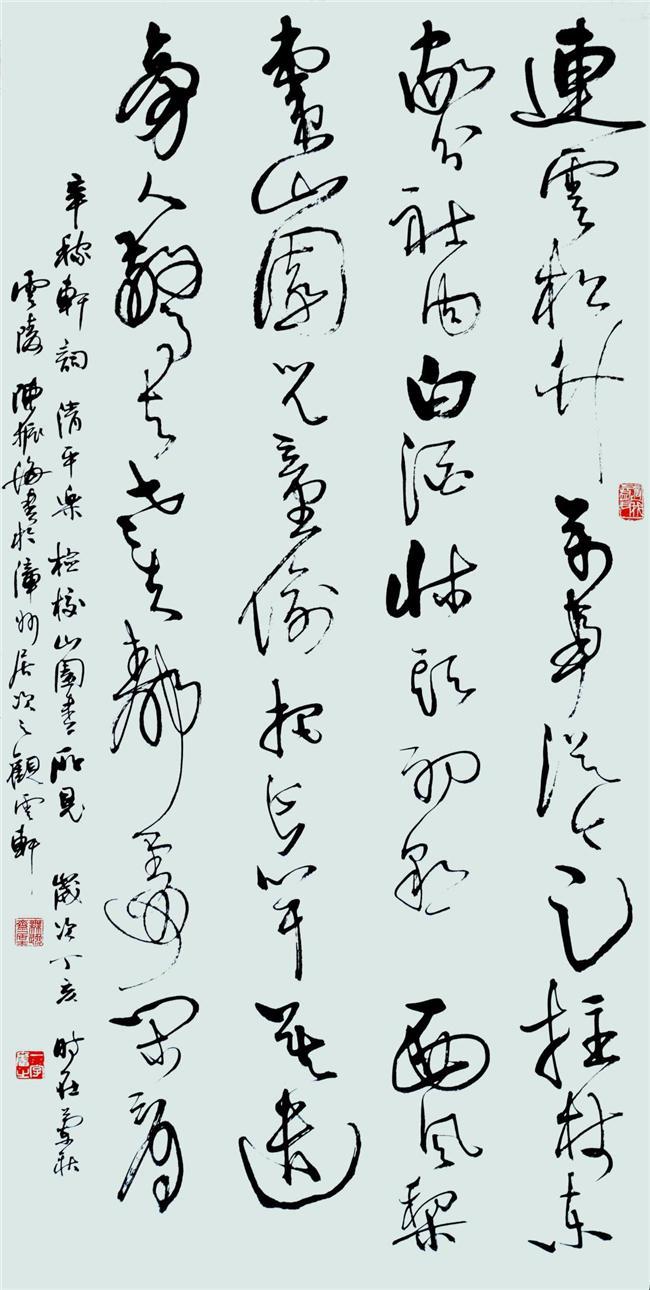 連雲松竹 萬事從今足 拄杖東
家分社肉 白酒牀頭初熟 西風梨
棗山園 兒童偷把長竿 莫遣
旁人驚去 老夫靜處閑看
辛稼軒詞 清平樂 檢校山園書所見 歲次丁亥 时在蘭秋
雲陵 陳振海書於漳州居次之觀雲軒